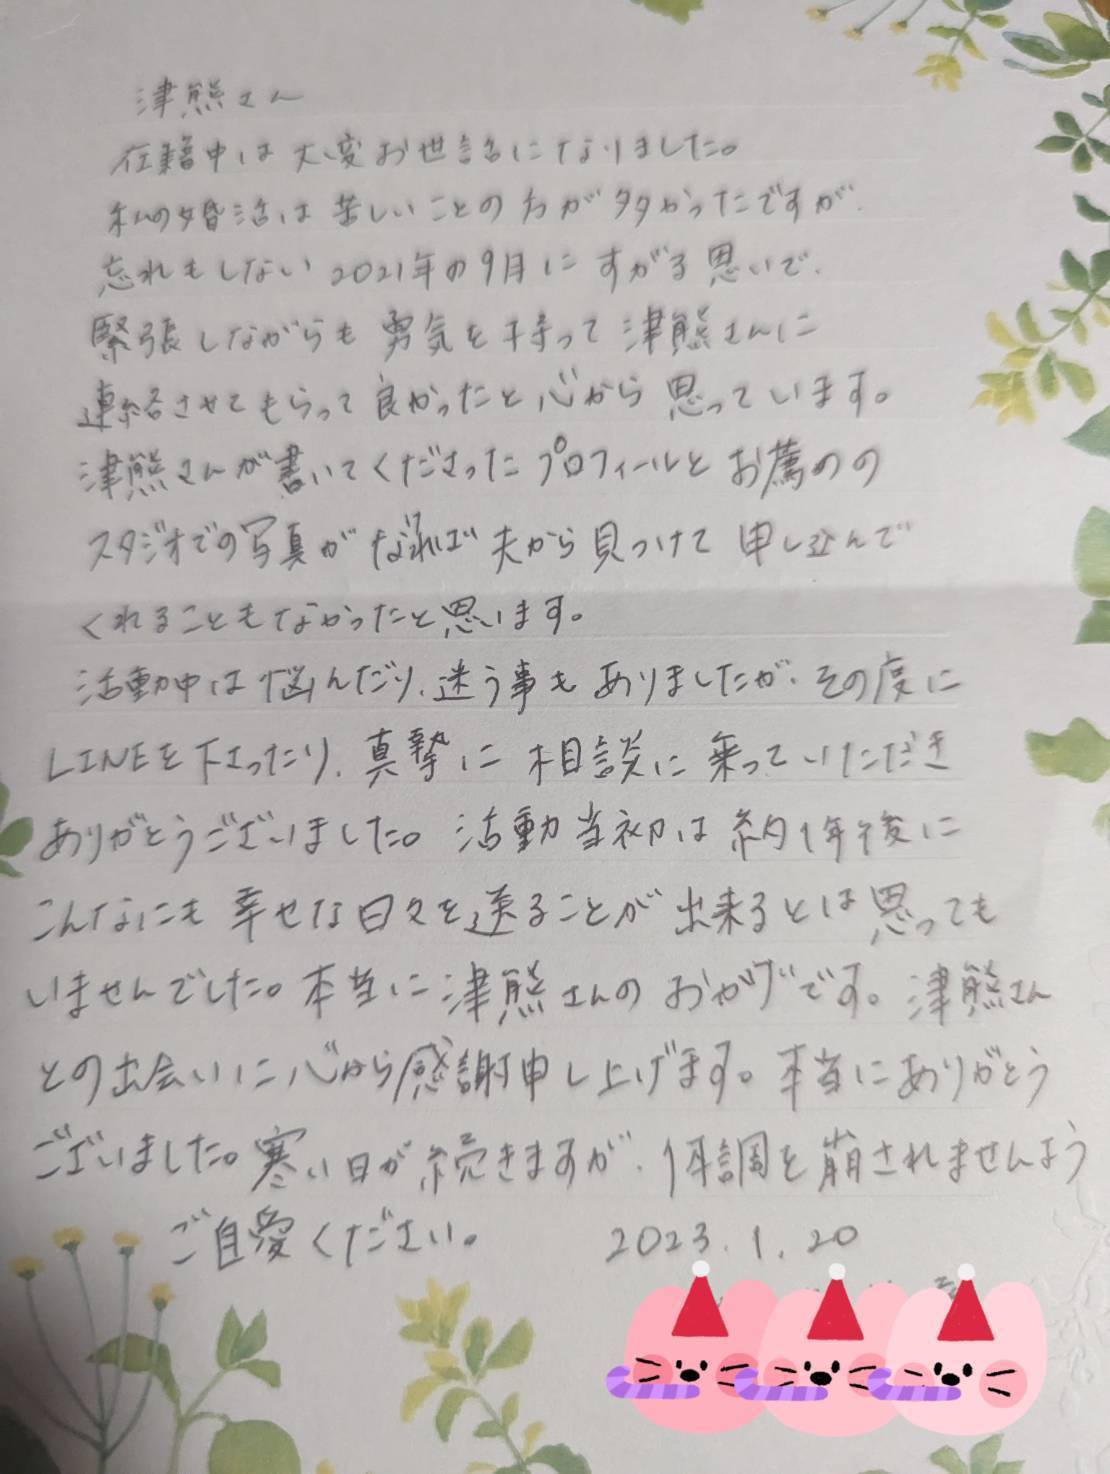 津熊さん
在籍中は大変お世話になりました。
私の婚活は苦しいことの方が多かったですが、
忘れもしない2021年の9月にすがる思いで、
緊張しながらも勇気を持って津熊さんに
連絡させてもらって良かったと心から思っています。
津熊さんが書いてくださったプロフィールとお薦めの
スタジオでの写真がなければ夫から見つけて申し込んで
くれることもなかったと思います。
活動中は悩んだり、迷う事もありましたが、その度に
LINEを下さったり、真摯に相談に乗っていただき
ありがとうございました。活動当初は約1年後に
こんなにも幸せな日々を送ることが出来るとは思っても
いませんでした。本当に津熊さんのおかげです。津熊さん
との出会いに心から感謝申し上げます。本当にありがとう
ございました。寒い日が続きますが、体調を崩されませんよう
ご自愛ください。 2023.1.20